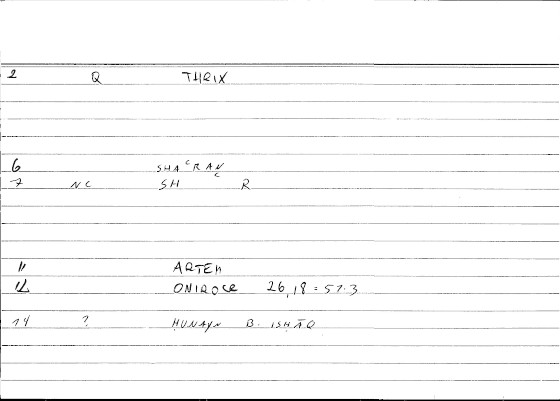 2 Q THRIX
6 SHAʿRAN
7 NC SH R
11 ARTEM
12 ONIROCR 26,18 = 57.3
14 ? HUNAYN B. ISHĀQ